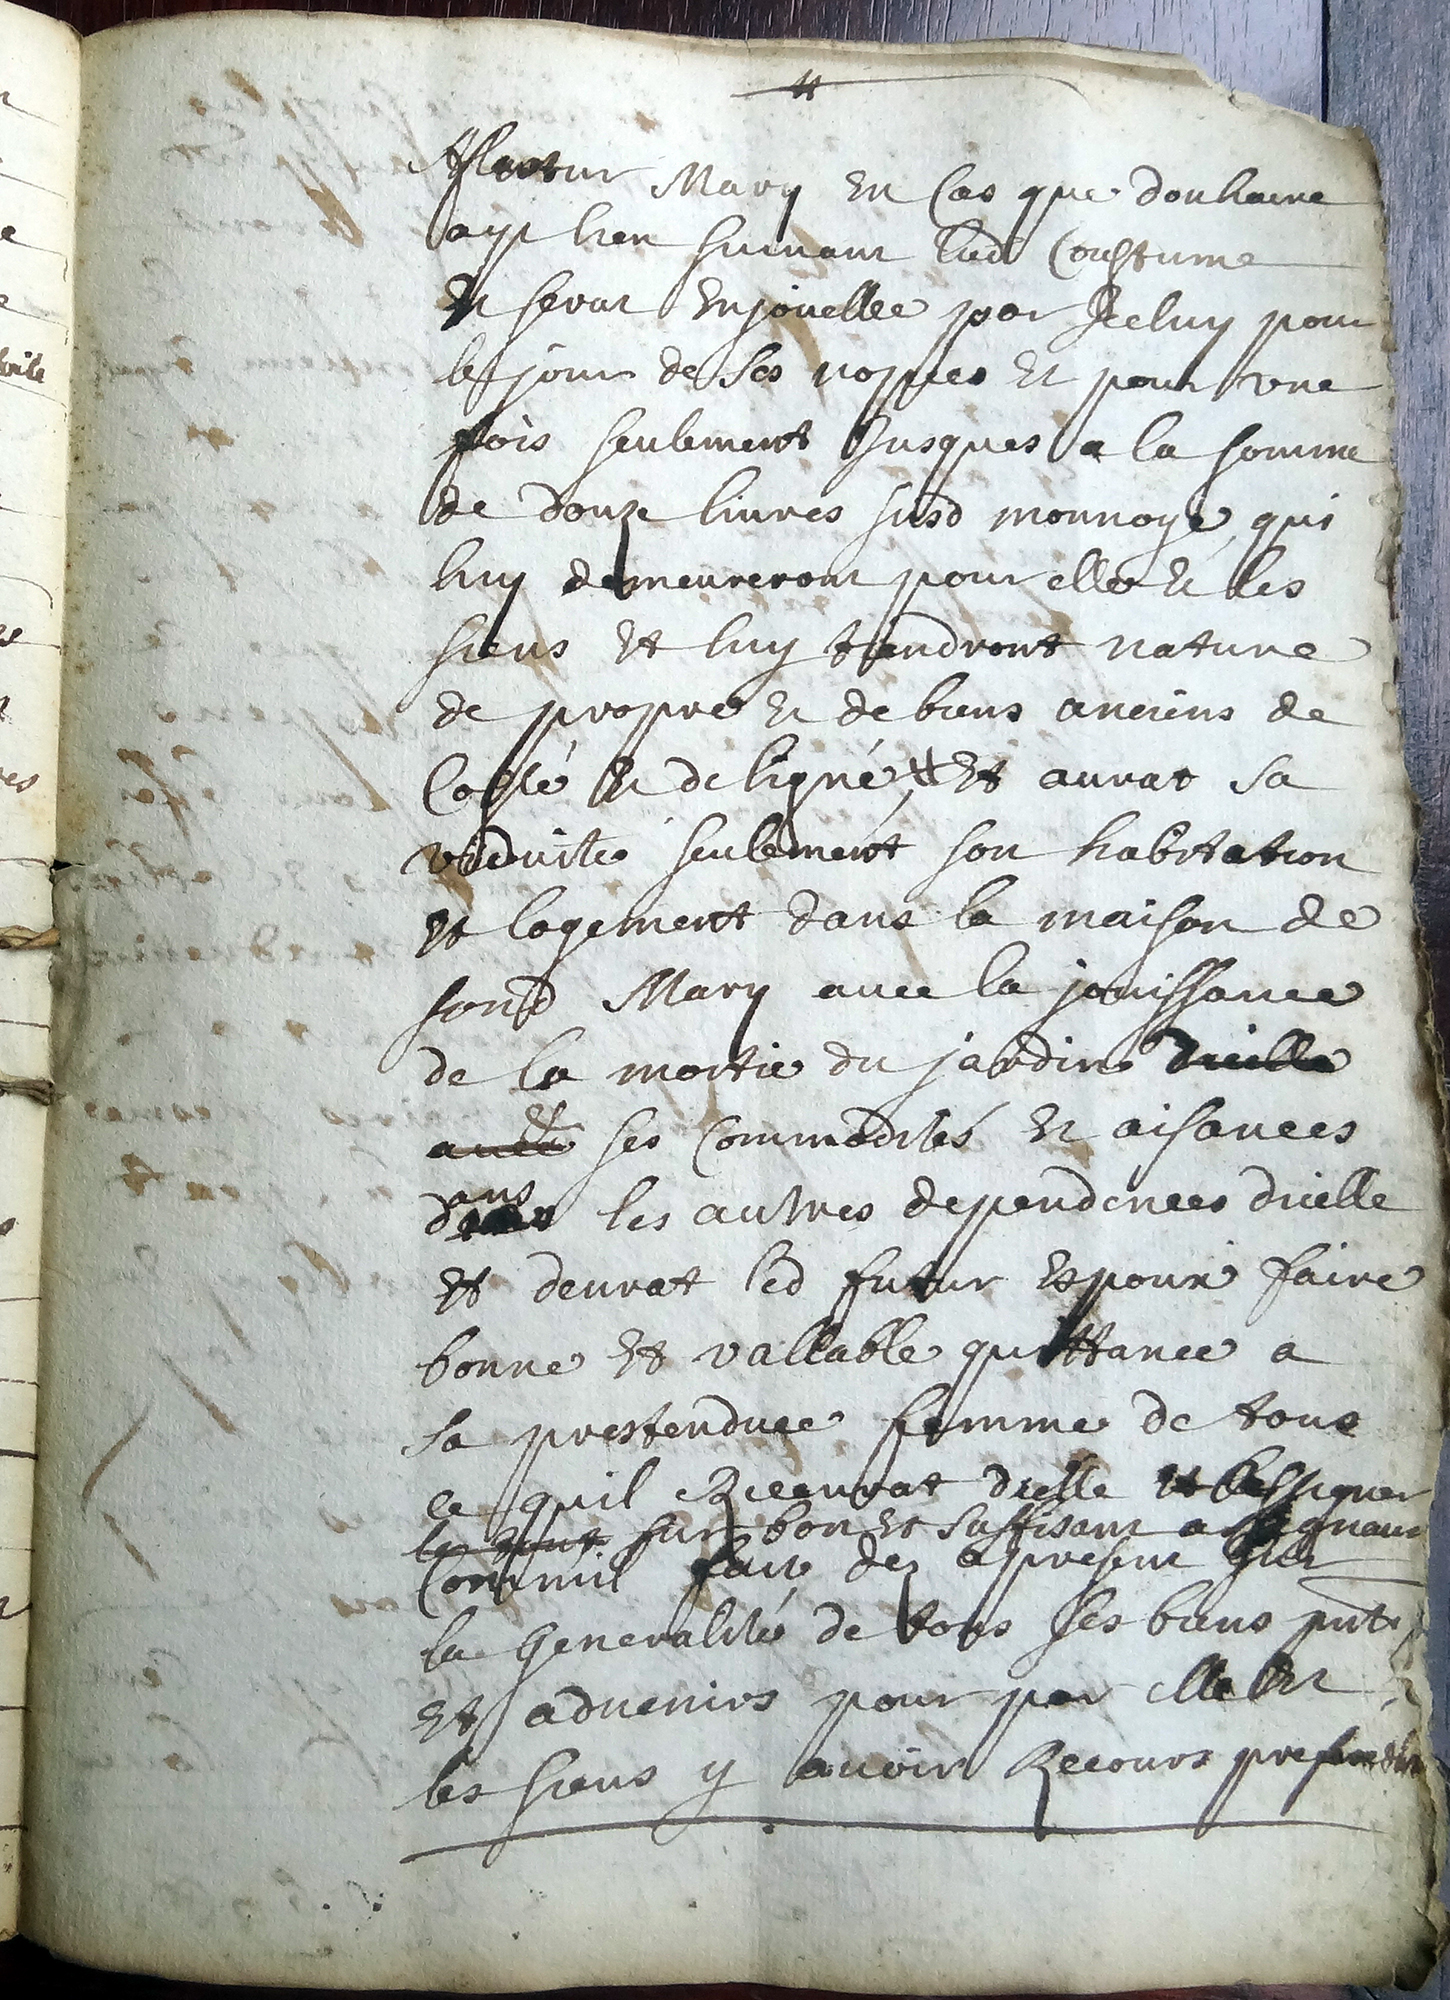 futur Mary En Cas que douhaire
ayt lieu suiuant lad Coustume
Et serat Enjouellee par Jceluy pour
le jour de Ses nopces Et pour vne
fois seulement Jusques a la somme
de douze liures susd monnoye qui
luy demeureront pour elle Et les
siens Et luy tiendront nature
de propre Et de biens anciens de
Costé Et de ligné Et aurat sa
viduité seulement son habitation
Et logement dans la maison de
sond Mary auec la jouissance
de la moitie du jardin dicelle
auec Et ses Commodités Et aisances
dans les autres dependences dicelle
Et deurat led futur Espoux faire
bonne Et vallable quittance a
sa prestendue femme de tous
ce quil Receurat dicelle Et lassigner
sur bon Et suffisant assignaux
Comme il fait dez apresent sur
la Generalité de tous ses biens pnts
Et aduenirs pour par elle Et
les siens y auoir Recours